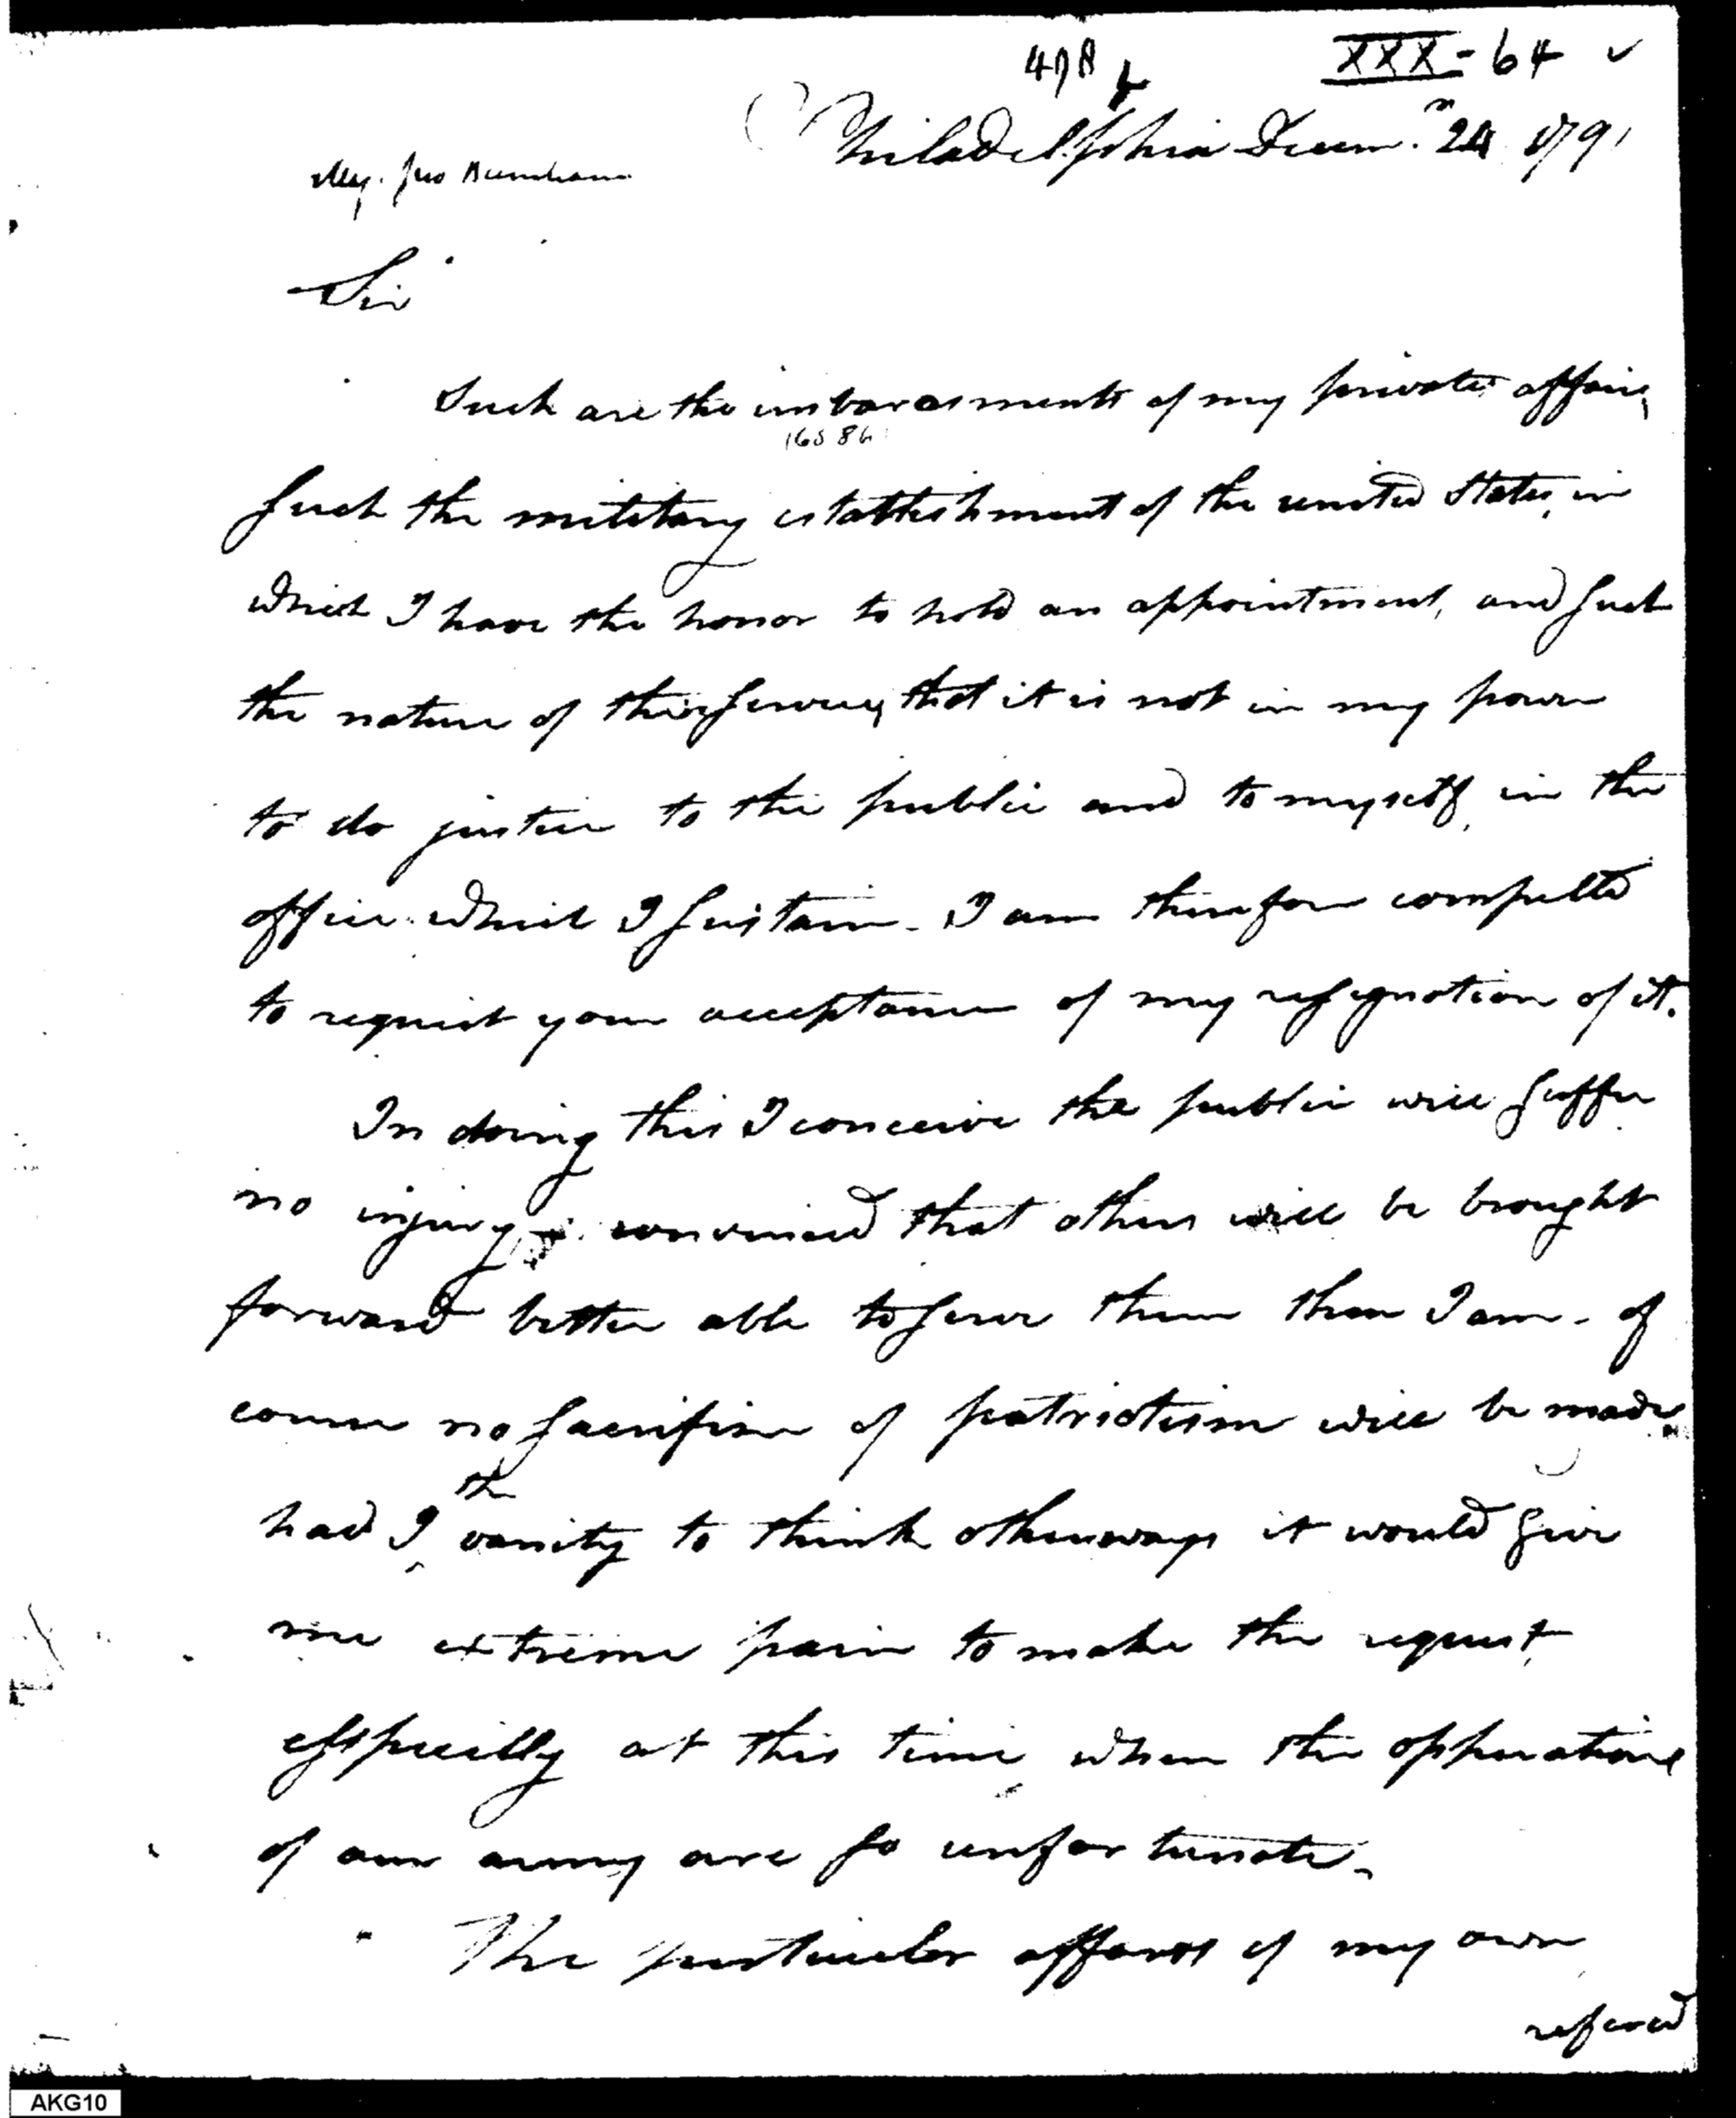 478
XXX - 64 ✓
Philadelphia Decem.r 24 1791
Maj. Jno Burnham
Sir
Such are the imbarasments of my private affairs,
1658 6
such the military establishment of the united States, in
which I have the honor to hold an appointment, and such
the nature of their service, that it is not in my power
to do justice to the public and to myself, in the
office which I sustain - I am therefore compelled
to request your acceptance of my resignation of it.
In doing this I conceive the public will suffer
no injury convinced that others will be brought
forward better able to serve them than I am - of
course no sacrifise of patriotism will be made
the
had I vanity to think otherways it would give
me extreme pain to make the request,
especially at this time when the opperations
of our army are so unfortunate.
The particular affairs of my own
refered
AKG10